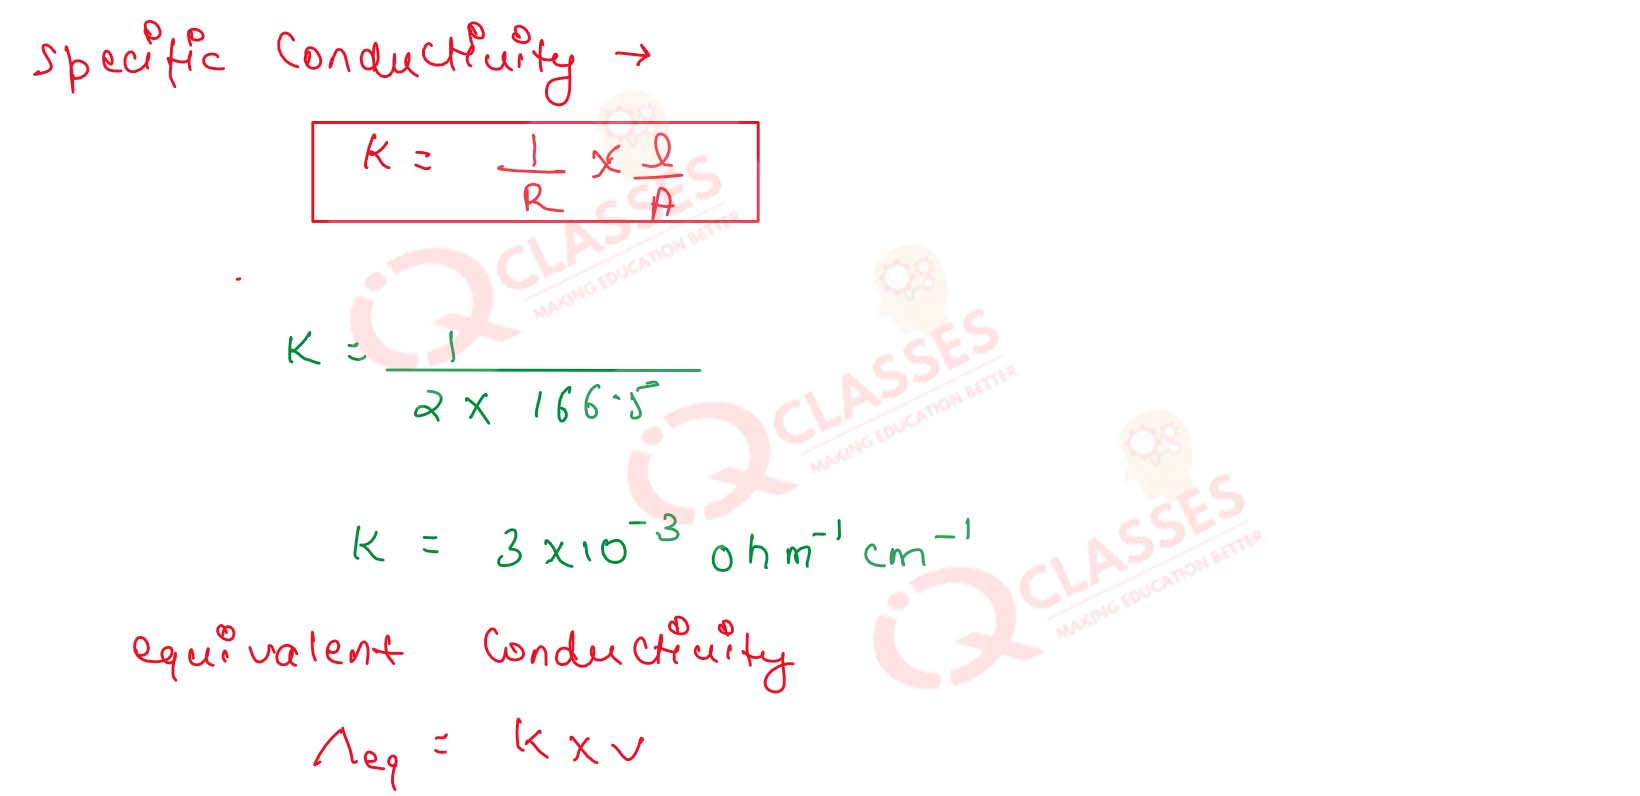 Specific Conductivity →
K = 1/R × l/A
K = 1/(2 × 166.5)
K = 3 × 10⁻³ ohm⁻¹ cm⁻¹
equivalent Conductivity
Λeq = K × v
iQ CLASSES
MAKING EDUCATION BETTER
iQ CLASSES
MAKING EDUCATION BETTER
iQ CLASSES
MAKING EDUCATION BETTER